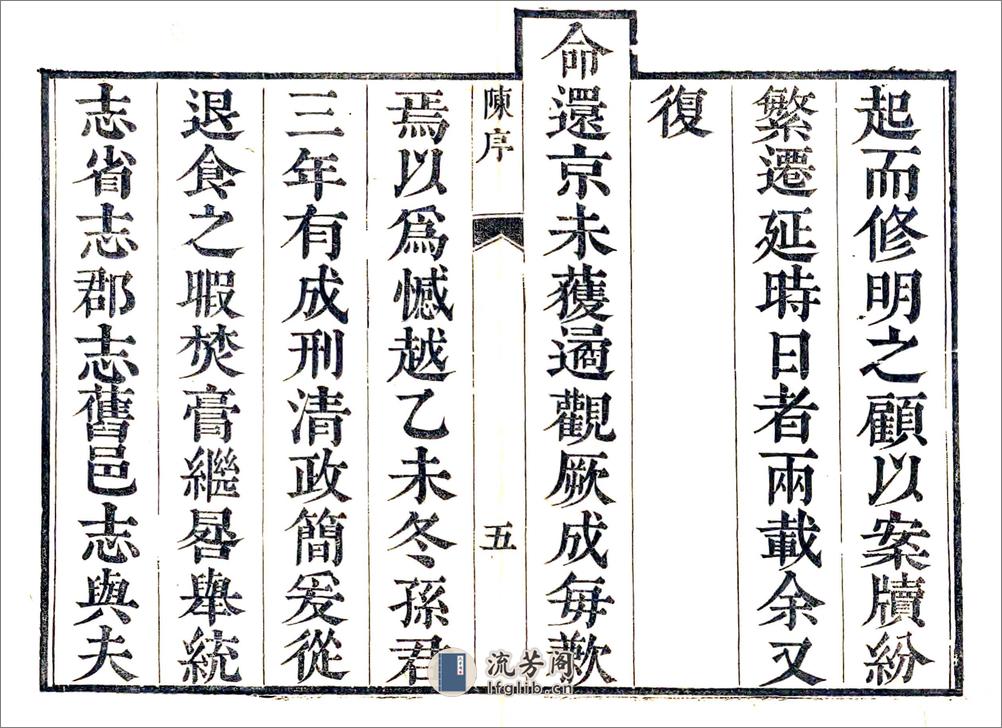 起而修明之顧以案牘紛
繁遷延時日者兩載余又
復
命還京未獲遹觀厥成每歎
陳序 五
焉以爲憾越乙未冬孫君
三年有成刑清政簡爰從
退食之暇焚膏繼晷舉統
志省志郡志舊邑志與夫
流芳阁
lfglib.cn